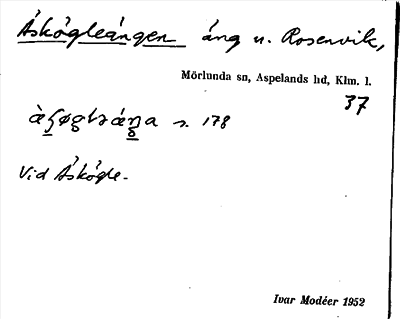 Åskögleängen äng u. Rosenvik,
Mörlunda sn, Aspelands hd, Klm. l.
37
s. 178
Vid Åskögle.
Ivar Modéer 1952